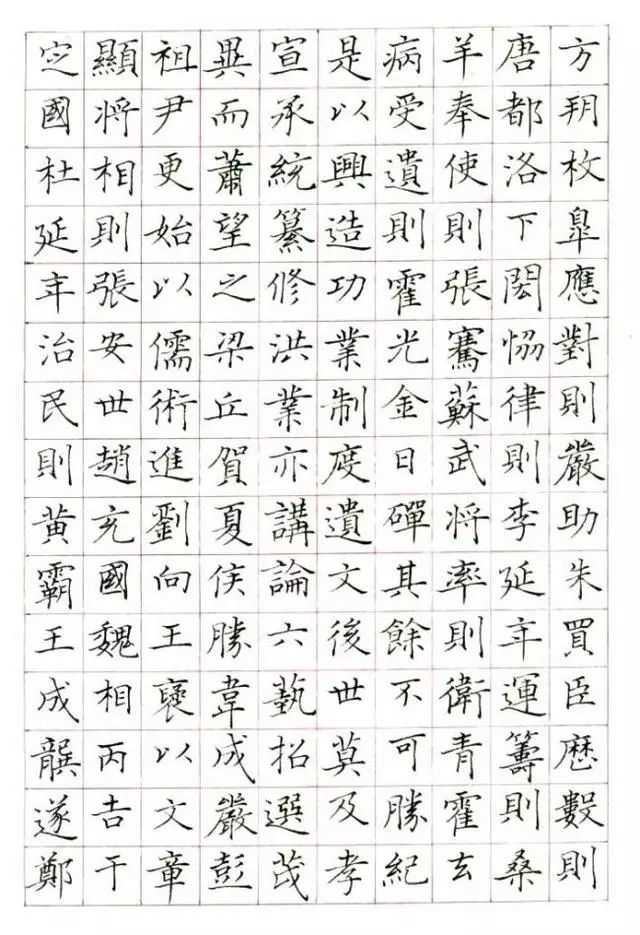 方朔枚皐應對則嚴助朱買臣歷數則
唐都洛下閎恊律則李延年運籌則桑
羊奉使則張騫蘇武將率則衛青霍去
病受遺則霍光金日磾其餘不可勝紀
是以興造功業制度遺文後世莫及孝
宣承統纂修洪業亦講論六藝招選茂
異而蕭望之梁丘賀夏侯勝韋成嚴彭
祖尹更始以儒術進劉向王襃以文章
顯將相則張安世趙充國魏相丙吉于
定國杜延年治民則黃霸王成龔遂鄭